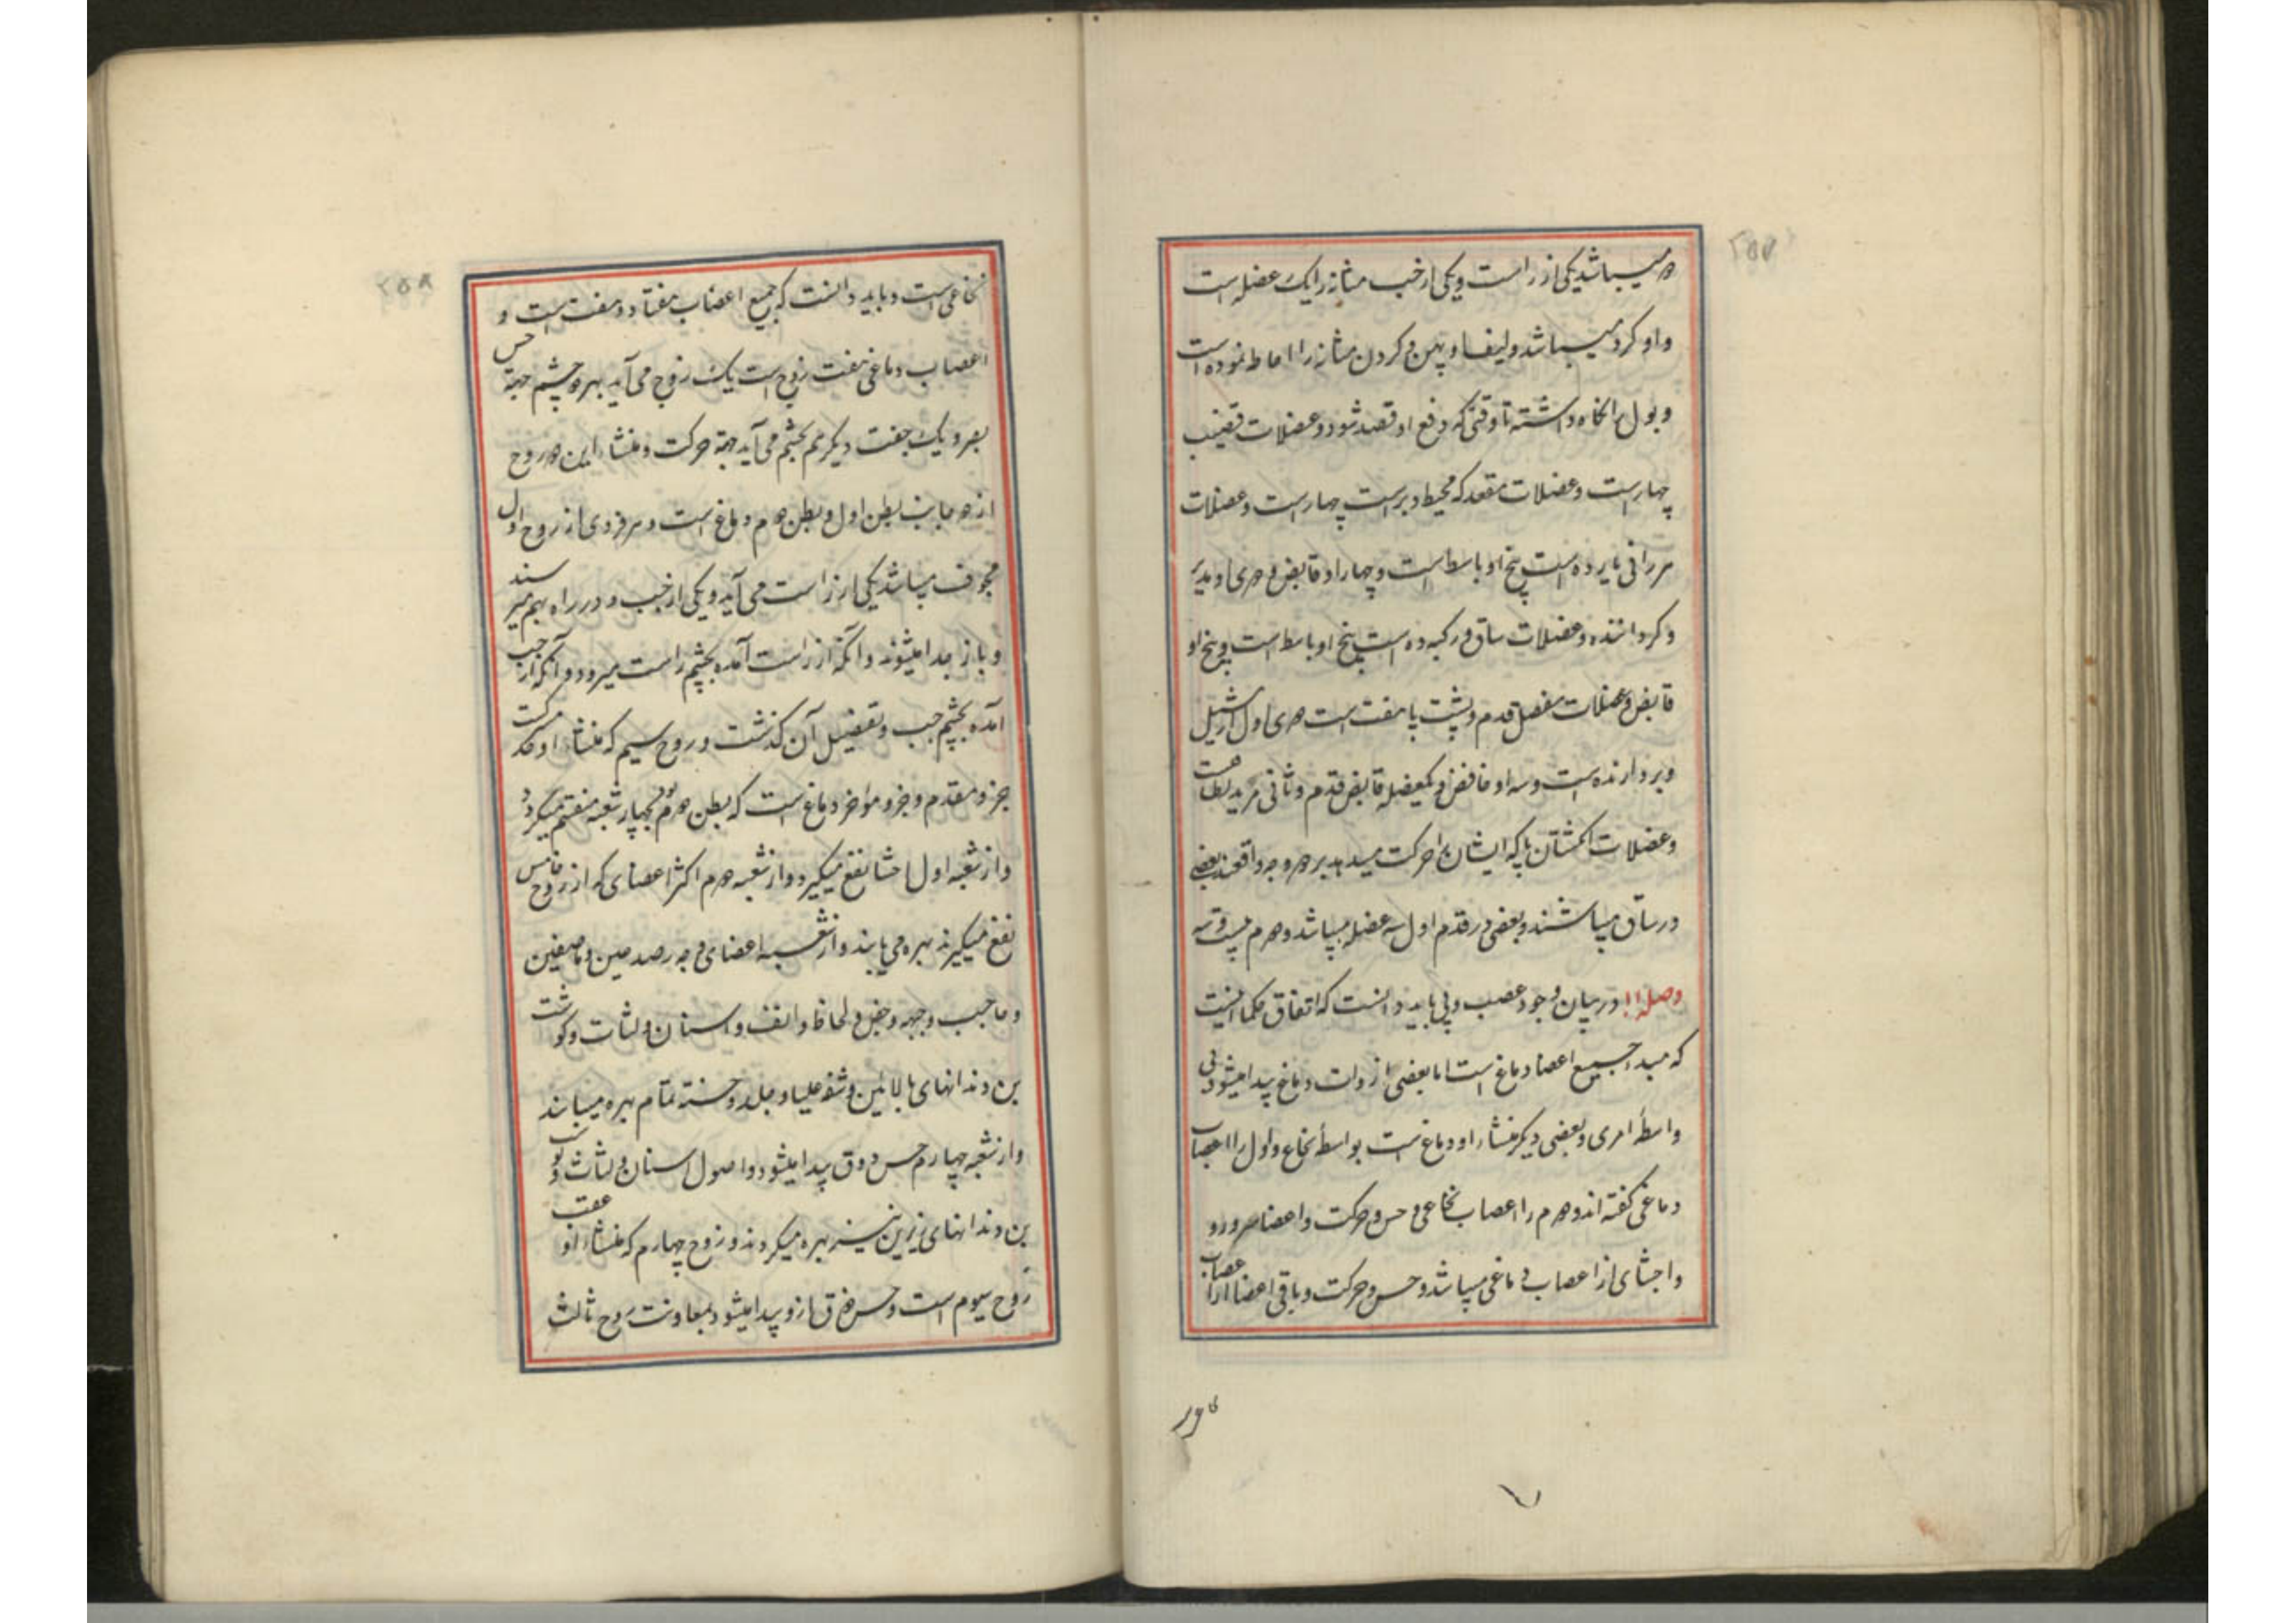 ۲۵۷
دو میباشد یکی از راست و یکی از چپ مثانه را یک عضله است
و او کرد میباشد و لیف او پهن و کردن مثانه را احاطه نموده است
و بول را نکاه داشته تا وقتی که دفع او قصد شود و عضلات قضیب
چهار است و عضلات مقعد که محیط دبر است چهار است و عضلات
مر رانی را ده است پنج او باسط است و چهار او قابض و
و کرداننده و عضلات ساق و رکبه ده است پنج او باسط است و پنج او
قابض و عضلات مفصل قدم و پشت پا هفت است اول
و بردارنده است و سه او خافض و یکعضله قابض قدم و ثانی
و عضلات انکشتان پا که ایشان را حرکت میدهد بر دو وجه واقعند بعضی
در ساق میباشند و بعضی در قدم اول سه عضله میباشد و دوم بیست و سه
وصل ۱۱ در بیان وجود عصب و پی باید دانست که اتفاق حکما اینست
که مبدا جمیع اعضا دماغ است اما بعضی از ذات دماغ پیدا میشود بی
واسطهٔ امری و بعضی دیکر منشاء او دماغ است بواسطهٔ نخاع و اول را اعصاب
دماغی کفته اند و دوم را اعصاب نخاعی و حس و حرکت و اعضا سر و رو
و احشای از اعصاب دماغی میباشد و حس و حرکت و باقی اعضا از اعصاب
۲۵۸
نخاعی است و باید دانست که جمیع اعصاب هفتاد و هفت است و
اعصاب دماغی هفت زوج است یک زوج می آید بهر دو چشم جهة حس
بصر و یک جفت دیکر هم بچشم می آید جهة حرکت و منشاء این دو زوج
از دو جانب بطن اول و بطن دوم دماغ است و هر فردی از زوج اول
مجوف میباشد یکی از راست می آید و یکی از چپ و در راه بهم میرسند
و باز جدا میشوند و آنکه از راست آمده بچشم راست میرود و آنکه از چپ
آمده بچشم چپ و تفضیل آن کذشت و زوج سیم که منشاء او
جزو مقدم و جزو مواخر دماغ است که بطن دوم بچهار شعبه منقسم میکردد
و از شعبه اول احشا نفع میکیرد و از شعبه دوم اکثر اعضای که از زوج خامس
نفع میکیرند بهره می یابند و از شعبه اعضای وجه و صدغین و ماضغین
و حاجب و جبهه و جفن و لحاظ و انف و اسنان و لثات و کوشت
بن دندانهای بالائین و شفه علیا و جلد و تمام بهره مییابند
و از شعبه چهارم حس ذوق پیدا میشود و اصول اسنان و لثات و
بن دندانهای زیرین نیز بهره میکردند و زوج چهارم که منشاء او عقب
زوج سیوم است و حس ذوق ازو پیدا میشود بمعاونت زوج ثالث